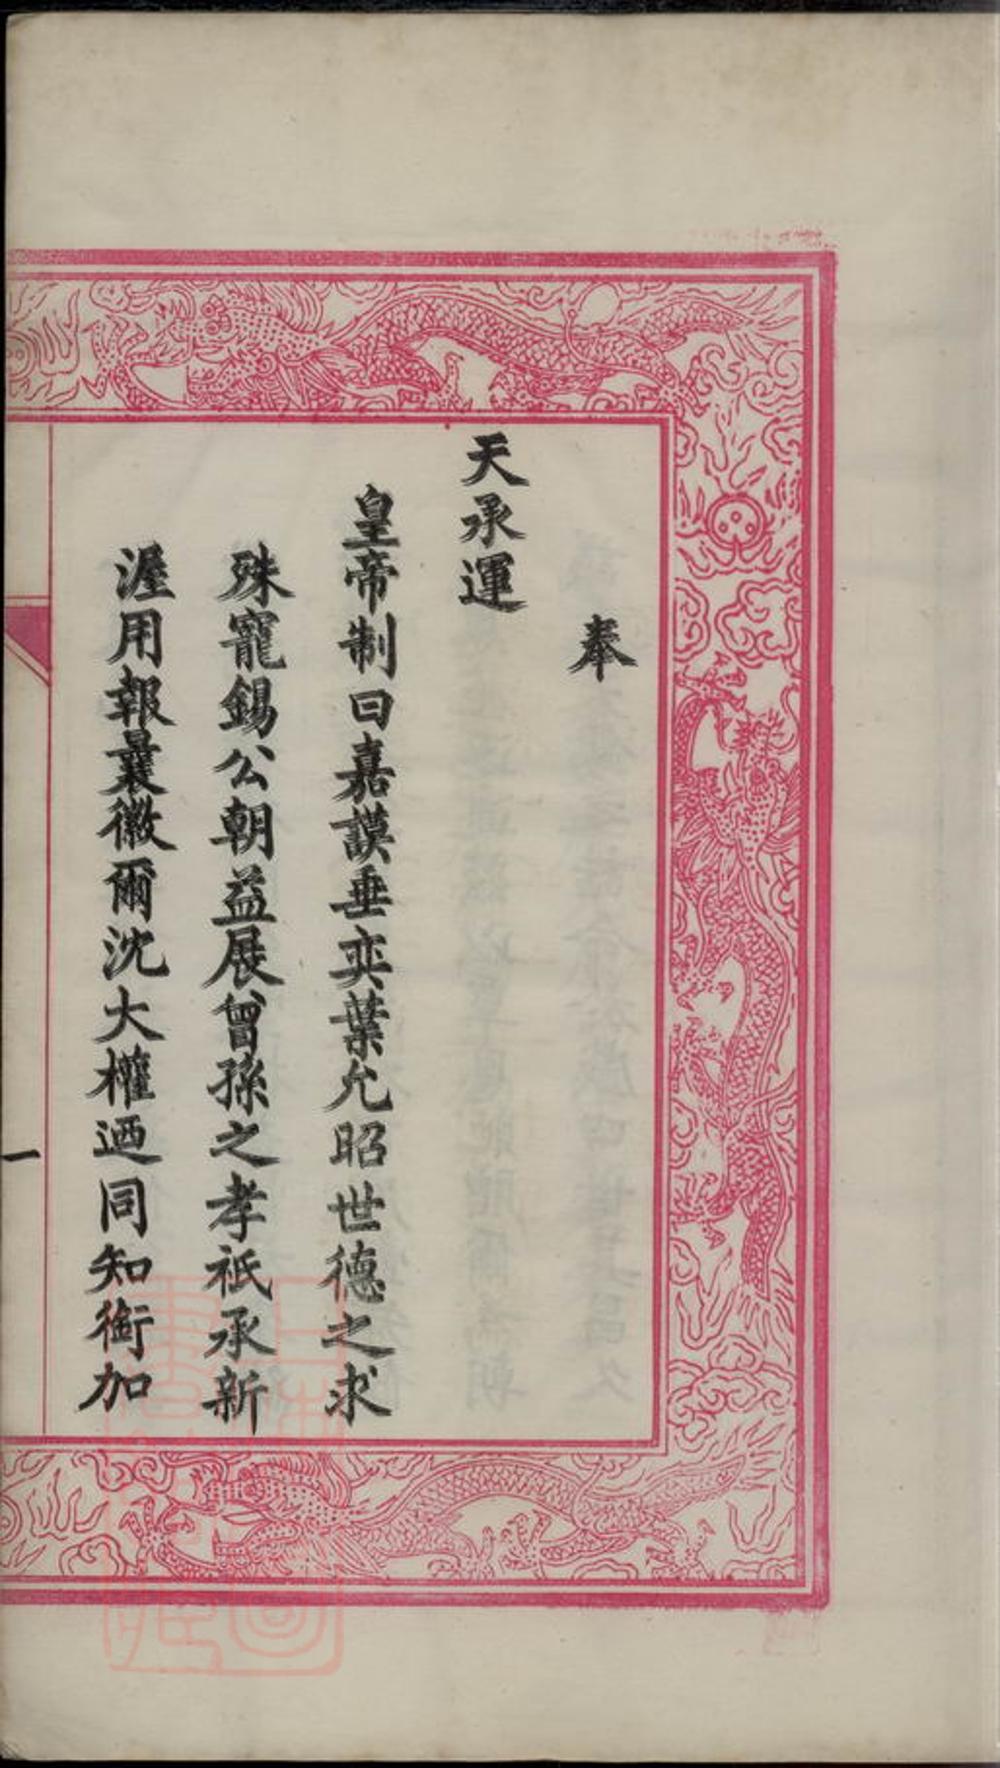 奉
天承運
皇帝制曰嘉謨垂奕葉允昭世德之求
殊寵錫公朝益展曾孫之孝祇承新
渥用報曩徽爾沈大權迺同知銜加
一